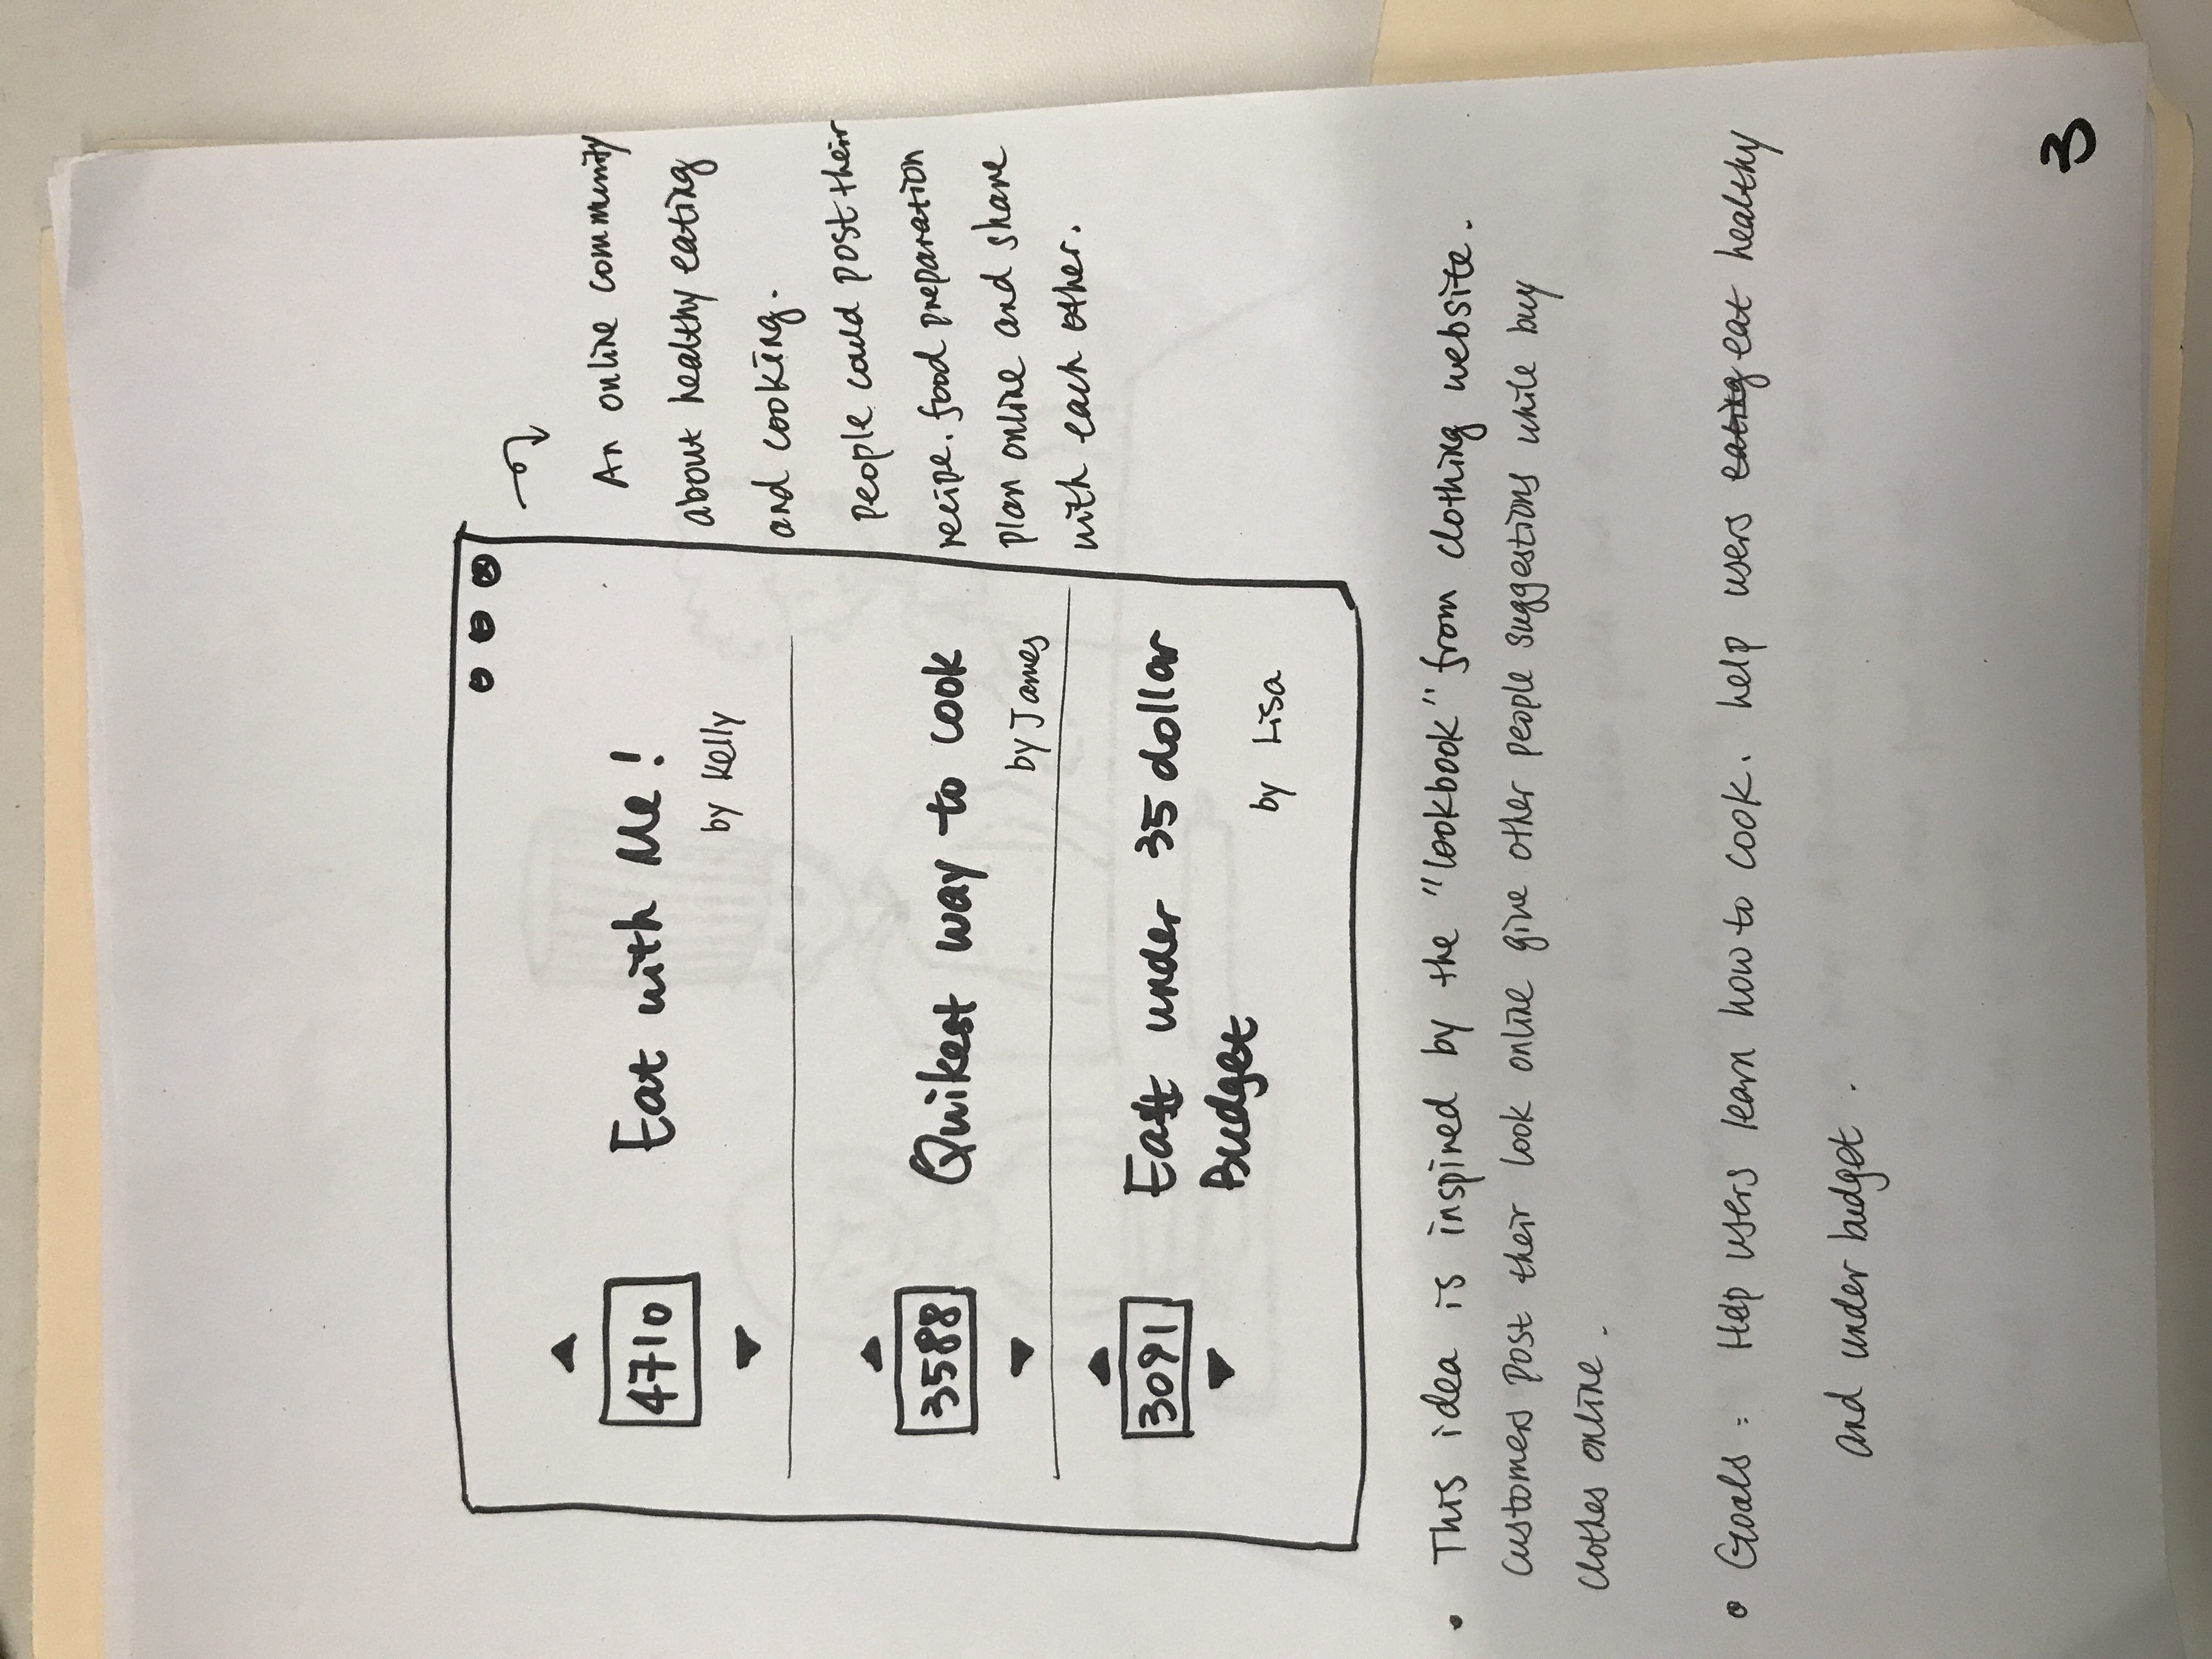 4710
Eat with Me!
by Kelly
3588
Quikest way to cook
by James
3091
Eat under 35 dollar
Budget
by Lisa
An online community
about healthy eating
and cooking.
People could post their
recipe. food preparation
plan online and share
with each other.
• This idea is inspired by the "lookbook" from clothing website.
Customers post their look online give other people suggestions while buy
clothes online.
• Goals: Help users learn how to cook. help users eating eat healthy
and under budget.
3